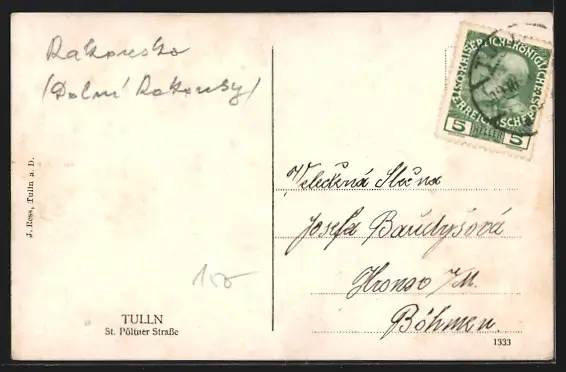 Rakousko
(Dolní Rakousy)
KAISERLICHE KÖNIGLICHE
ÖSTERREICHISCHE POST
5 HELLER 5
Velectěná Slečna
Josefa Baudyšová
Hronov /M.
Böhmen.
J. Ress, Tulln a. D.
150
TULLN
St. Pöltner Straße
1333